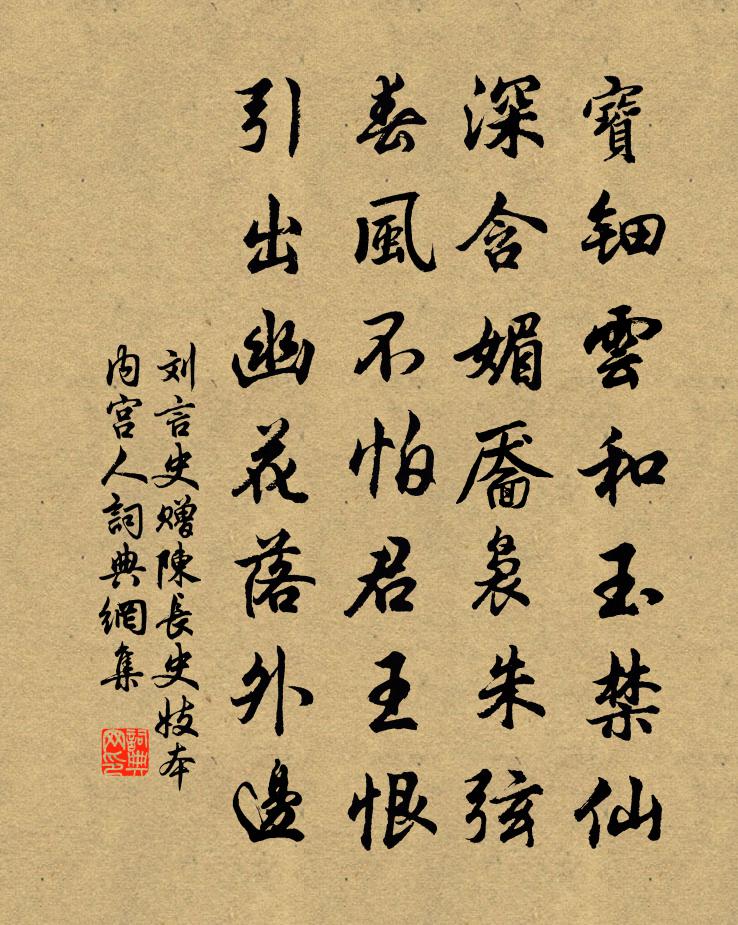 寶鈿雲和玉禁仙
深含媚靨裊朱弦
春風不怕君王恨
引出幽花落外邊
刘言史赠陳長史妓本
内宫人詞典網集
詞典网